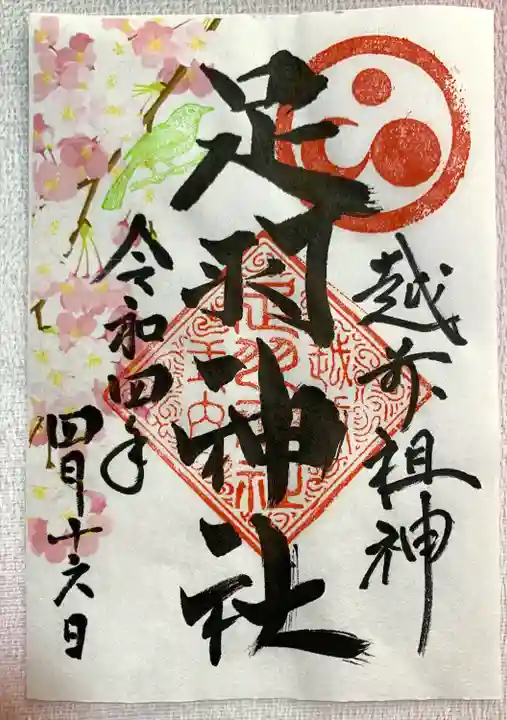 越前祖神
足羽神社
令和四年
四月十六日